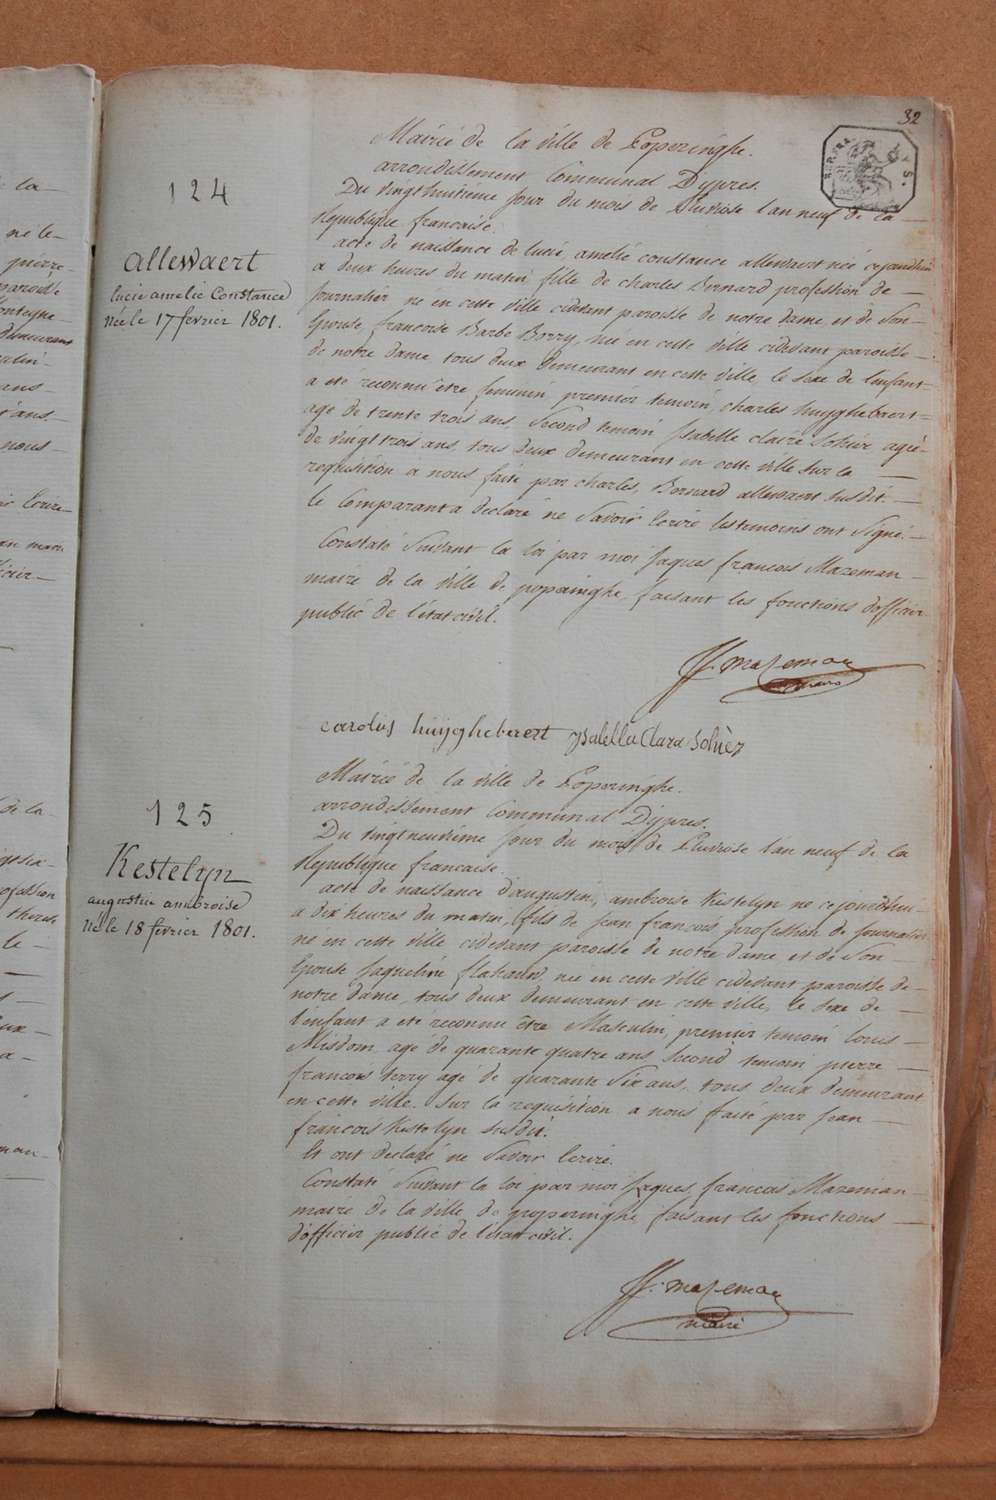 32
Mairié de la ville de Poperinghe.
arrondissement Communal Dypres.
124
Du vingthuitiême Jour du mois de Pluviose l'an neuf de la
Republique francaise.
allewaert
lucie amelie Constance
née le 17 fevrier 1801.
acte de naissance de lucie, amelié constance allewaert née cejourdhui
a deux heures du matin, fille de charles Bernard profession de
Journalier né en cette ville cidevant paroisse de notre dame, et de Son
Epouse, francoise Barbe Borry, née en cette ville cidevant paroisse
de notre dame, tous deux demeurant en cette ville, le Sexe de l'enfant
a eté reconnu être feminin, premier temoin, charles huyghebaert
agé de trente trois ans, Second temoin Isabelle claire Sohier, agée
de vingt trois ans, tous deux demeurant en cette ville sur la
requisition a nous faite par charles, Bernard allewaert Susdit.
le Comparant a declaré ne Savoir Ecrire les temoins ont Signé.
Constaté Suivant la loi par moi Jaques françois Mazeman
maire de la ville de poperinghe, faisant les fonctions d'officier
public de l'état civil.
JJ. Mazeman
maire
carolus huijghebaert ysabella Clara Sohier
Mairié de la ville de Poperinghe.
arrondissement Communal Dypres.
125
Du vingtneuvieme Jour du mois de Pluviose l'an neuf de la
Republique francaise.
Kestelyn
augustin ambroise
né le 18 fevrier 1801.
acte de naissance d'augustin, ambroise Kestelyn né cejourdhui
a dix heures du matin, fils de Jean francois, profession de Journalier
né en cette ville cidevant paroisse de notre dame et de Son
Epouse Jaqueline flahaut, née en cette ville cidevant paroisse de
notre dame, tous deux demeurant en cette ville, le Sexe de
l'enfant a eté reconnu être Masculin, premier temoin louis
Misdom, agé de quarante quatre ans, Second temoin pierre
francois terry agé de quarante Six ans, tous deux demeurant
en cette ville. Sur la requisition a nous faite par Jean
francois Kestelyn Susdit.
Et ont declaré ne Savoir Ecrire.
Constaté Suivant la loi par moi Jaques, francois Mazeman
maire de la ville de poperinghe faisant les fonctions
d'officier public de l'état civil.
JJ. Mazeman
maire